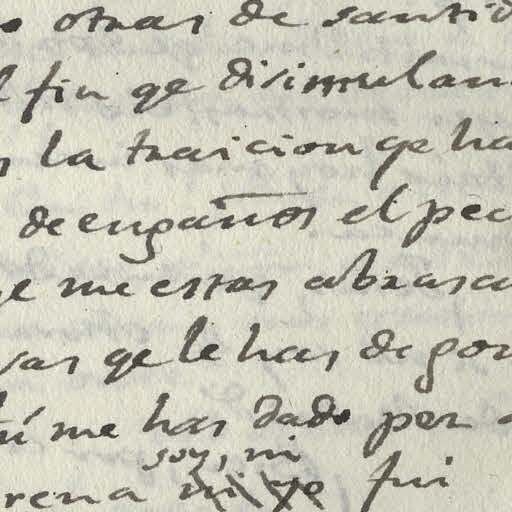 otras de santid
fin qe disimulan
la traicion qe ha
de engaños el pec
me estas abrasa
vas qe le has de goz
tú me has dado por
soy, ni
rena ni yo fui